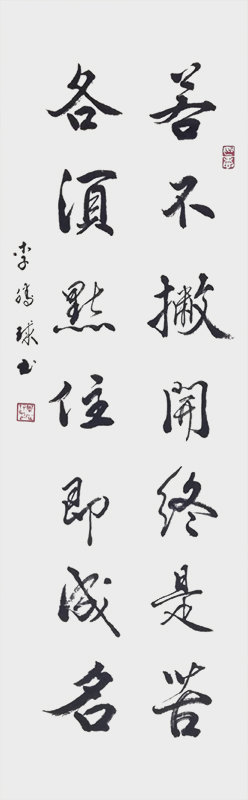 若不撇開終是苦
各須點住即成名
李鴻球书